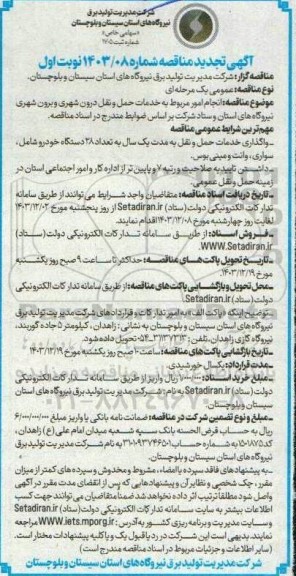 شرکت مدیریت تولید برق
نیروگاه های استان سیستان و بلوچستان
«سهامی خاص»
شماره ثبت ۱۷۰۵
آگهی تجدید مناقصه شماره ۱۴۰۳/۰۸ نوبت اول
مناقصه گزار: شرکت مدیریت تولید برق نیروگاه های استان سیستان و بلوچستان.
نوع مناقصه: عمومی یک مرحله ای
موضوع مناقصه: انجام امور مربوط به خدمات حمل و نقل درون شهری و برون شهری
نیروگاه های استان و ستاد شرکت بر اساس ضوابط مندرج در اسناد مناقصه.
مهم ترین شرایط عمومی مناقصه
-واگذاری خدمات حمل و نقل به مدت یک سال به تعداد ۲۸ دستگاه خودرو شامل،
سواری، وانت و مینی بوس.
-داشتن تاییدیه صلاحیت و رتبه ۷ و پایین تر از اداره کار و امور اجتماعی استان در
زمینه حمل و نقل عمومی
-تاریخ دریافت اسناد مناقصه: متقاضیان واجد شرایط می توانند از طریق سامانه
تدارکات الکترونیکی دولت (ستاد) Setadiran.ir از روز پنجشنبه مورخ ۱۴۰۳/۱۲/۰۲
لغایت روز چهارشنبه مورخ ۱۴۰۳/۱۲/۰۸ اقدام نمایند.
-فروش اسناد: از طریق سامانه تدارکات الکترونیکی دولت (ستاد)
WWW.Setadiran.ir.
-تاریخ تحویل پاکت های مناقصه: حداکثر تا ساعت ۹ صبح روز یکشنبه
مورخ ۱۴۰۳/۱۲/۱۹.
-محل تحویل و بازگشایی پاکت های مناقصه: از طریق سامانه تدارکات الکترونیکی
دولت (ستاد) Setadiran.ir.
توضیح اینکه «پاکت الف» به امور تدارکات و قراردادهای شرکت مدیریت تولید برق
نیروگاه های استان سیستان و بلوچستان به نشانی: زاهدان، کیلومتر ۵ جاده گوربند،
نیروگاه گازی زاهدان تلفن: تحویل داده شود.
-تاریخ بازگشایی پاکت های مناقصه: ساعت ۱۰ صبح روز یکشنبه مورخ ۱۴۰۳/۱۲/۱۹
-مدت قرارداد: یکسال خورشیدی.
-مبلغ خرید اسناد: ۱/۰۰۰/۰۰۰ ریال واریز از طریق سامانه تدارکات الکترونیکی
دولت (ستاد) Setadiran.ir به نام شرکت مدیریت تولید برق نیروگاه های استان
سیستان و بلوچستان
-مبلغ و نوع تضمین شرکت در مناقصه: ضمانت نامه بانکی یا واریز مبلغ
ریال به حساب قرض الحسنه بانک سپه شعبه میدان امام علی (ع) زاهدان،
کد ۱۵۰۱۸۷۵ به شماره حساب به نام شرکت مدیریت تولید برق
نیروگاه های استان سیستان و بلوچستان.
-به پیشنهادهای فاقد سپرده یا امضاء، مشروط و مخدوش و سپرده های کمتر از میزان
مقرر، چک شخصی و نظایر آن و پیشنهادهایی که پس از انقضای مدت مقرر در آگهی
واصل شود مطلقا ترتیب اثر داده نخواهد شد ضمنا متقاضیان می توانند جهت کسب
اطلاعات بیشتر به سایت سامانه تدارکات الکترونیکی دولت (ستاد) Setadiran.ir
و سایت مدیریت و برنامه ریزی کشور به آدرس: WWW.iets.mporg.ir مراجعه
نمایند. بدیهی است این شرکت در رد یا قبول یک و یا کلیه پیشنهادات مختار است.
(سایر اطلاعات و جزئیات مربوط در اسناد مناقصه مندرج است)
شرکت مدیریت تولید برق نیروگاه های استان سیستان و بلوچستان